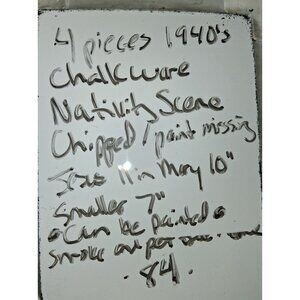 4 pieces 1940's
Chalkware
Nativity Scene
Chipped / paint missing
Jesus in Mary 10"
Smaller 7"
Can be painted
84